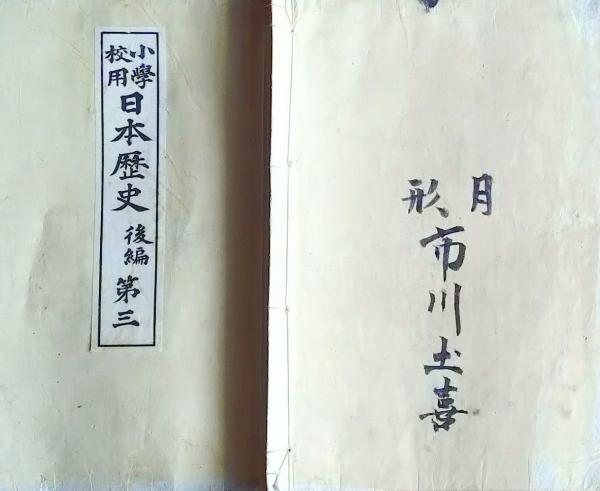 小學校用日本歷史後編第三
月形
市川土喜